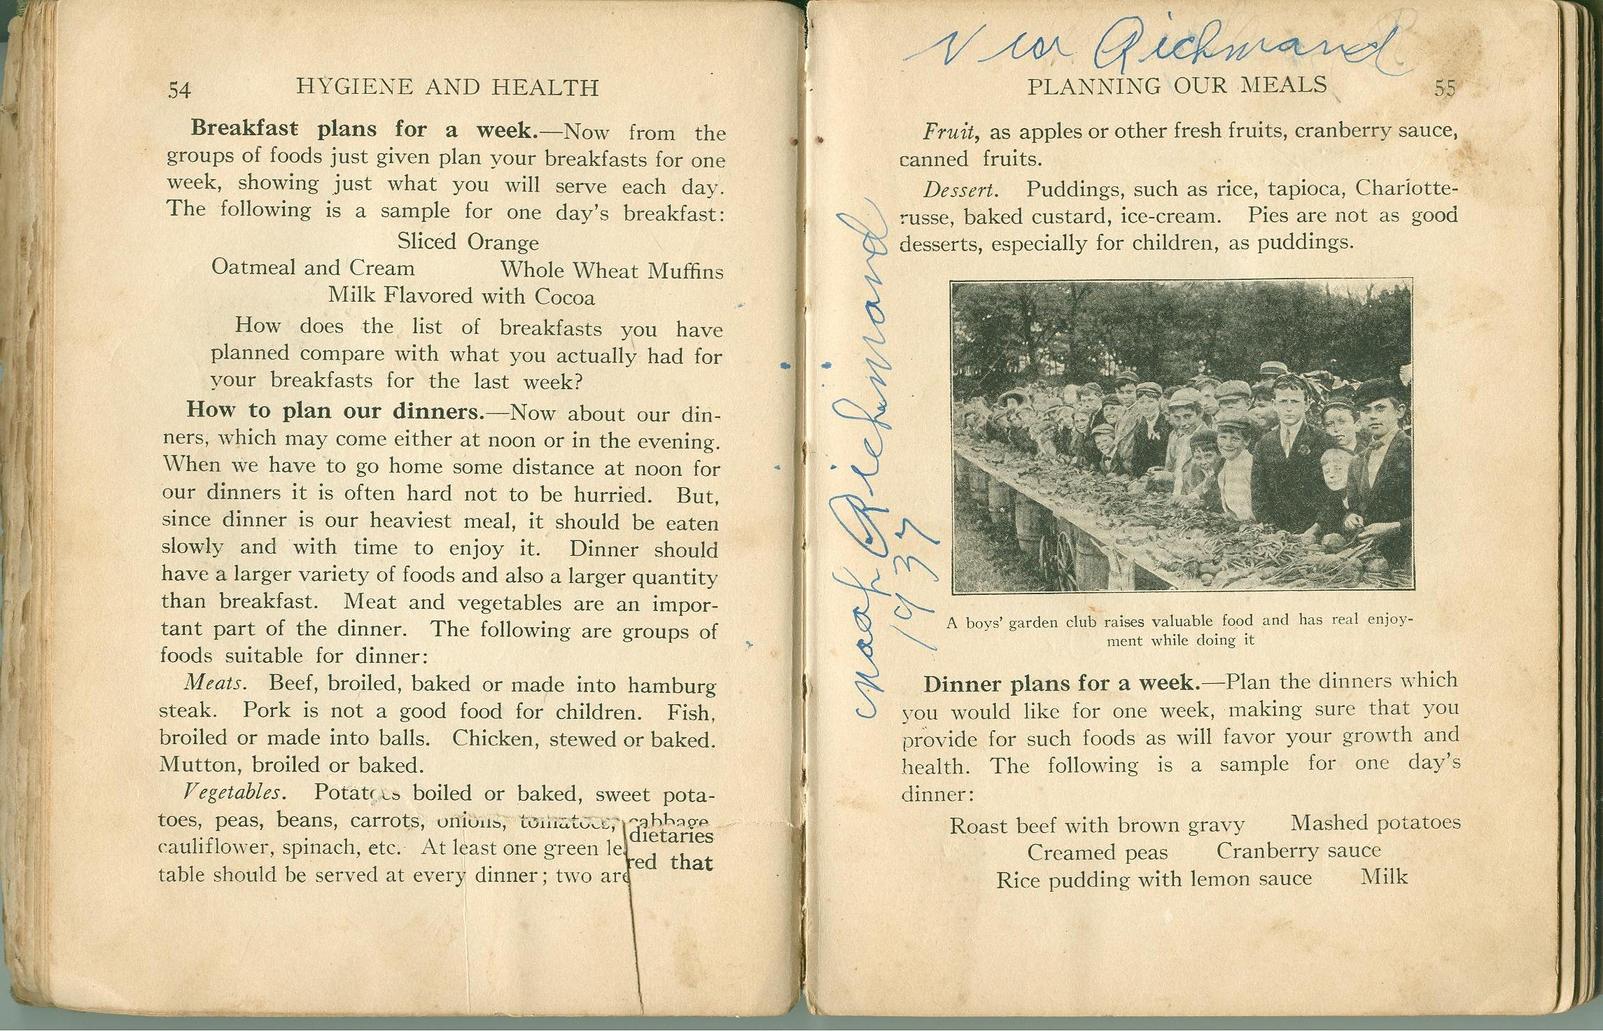 54 HYGIENE AND HEALTH
Breakfast plans for a week.—Now from the
groups of foods just given plan your breakfasts for one
week, showing just what you will serve each day.
The following is a sample for one day's breakfast:
Sliced Orange
Oatmeal and Cream Whole Wheat Muffins
Milk Flavored with Cocoa
How does the list of breakfasts you have
planned compare with what you actually had for
your breakfasts for the last week?
How to plan our dinners.—Now about our din-
ners, which may come either at noon or in the evening.
When we have to go home some distance at noon for
our dinners it is often hard not to be hurried. But,
since dinner is our heaviest meal, it should be eaten
slowly and with time to enjoy it. Dinner should
have a larger variety of foods and also a larger quantity
than breakfast. Meat and vegetables are an impor-
tant part of the dinner. The following are groups of
foods suitable for dinner:
Meats. Beef, broiled, baked or made into hamburg
steak. Pork is not a good food for children. Fish,
broiled or made into balls. Chicken, stewed or baked.
Mutton, broiled or baked.
Vegetables. Potatoes boiled or baked, sweet pota-
toes, peas, beans, carrots, onions, tomatoes, cabbage
cauliflower, spinach, etc. At least one green
table should be served at every dinner; two are
dietaries
red that
Richmand
PLANNING OUR MEALS 55
Fruit, as apples or other fresh fruits, cranberry sauce,
canned fruits.
Dessert. Puddings, such as rice, tapioca, Charlotte-
russe, baked custard, ice-cream. Pies are not as good
desserts, especially for children, as puddings.
Richmand
1937
A boys' garden club raises valuable food and has real enjoy-
ment while doing it
Dinner plans for a week.—Plan the dinners which
you would like for one week, making sure that you
provide for such foods as will favor your growth and
health. The following is a sample for one day's
dinner:
Roast beef with brown gravy Mashed potatoes
Creamed peas Cranberry sauce
Rice pudding with lemon sauce Milk